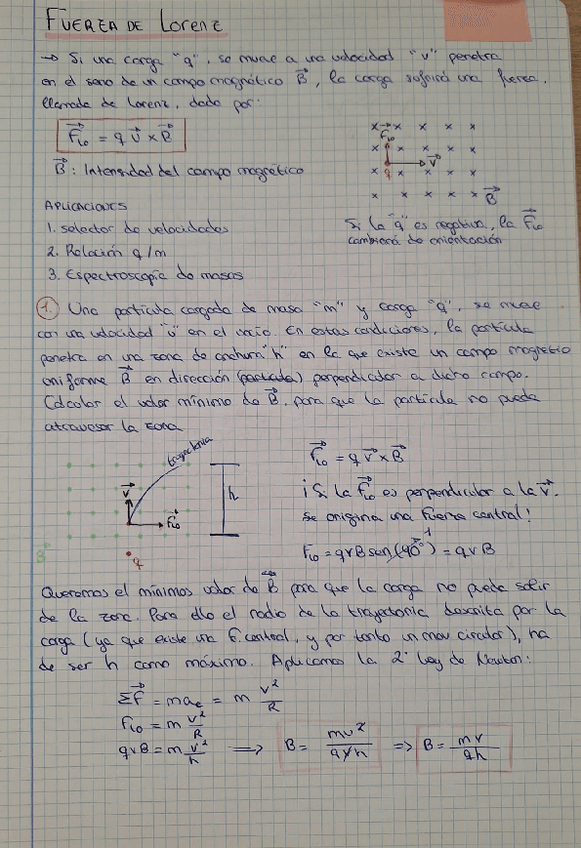 FUERZA DE LORENZ
→ Si una carga "q", se mueve a una velocidad "v" penetra
en el seno de un campo magnético B⃗, la carga sufrirá una fuerza,
llamada de Lorenz, dada por:
F⃗Lo = q v⃗ × B⃗
B⃗: Intensidad del campo magnético
F⃗Lo
v⃗
q
B⃗
Si la "q" es negativa, la F⃗Lo
cambiará de orientación
APLICACIONES
1. selector de velocidades
2. Relación q/m
3. Espectroscopía de masas
1. Una partícula cargada de masa "m" y carga "q", se mueve
con una velocidad "v" en el vacío. En estas condiciones, la partícula
penetra en una zona de anchura "h" en la que existe un campo magnético
uniforme B⃗ en dirección (partícula) perpendicular a dicho campo.
Calcular el valor mínimo de B⃗, para que la partícula no pueda
atravesar la zona
trayectoria
v⃗
F⃗Lo
h
B⃗
q
F⃗Lo = q v⃗ × B⃗
¡Si la F⃗Lo es perpendicular a la v⃗.
Se origina una Fuerza central!
FLo = qvB sen(90°) = qvB
1
Queremos el mínimos valor de B⃗ para que la carga no pueda salir
de la zona. Para ello el radio de la trayectoria descrita por la
carga (ya que existe una F. central, y por tanto un mov circular), ha
de ser h como máximo. Aplicamos la 2ª Ley de Newton:
ΣF⃗ = mac = m v²/R
FLo = m v²/R
qvB = m v²/h ⟹ B = mv²/qvh ⟹ B = mv/qh